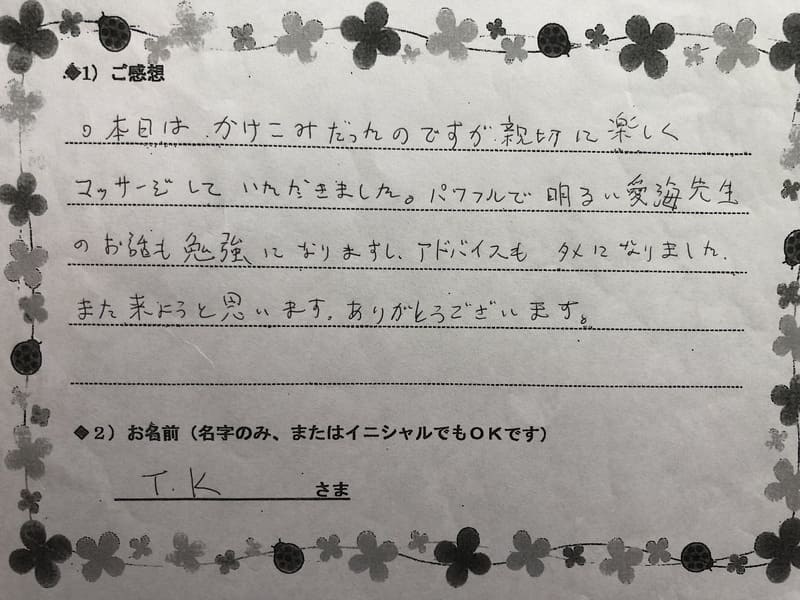 ◆1）ご感想
本日は、かけこみだったのですが親切に楽しく
マッサージしていただきました。パワフルで明るい愛海先生
のお話も勉強になりますし、アドバイスもタメになりました.
また来ようと思います。ありがとうございます。
◆2）お名前（名字のみ、またはイニシャルでもＯＫです）
T.K さま